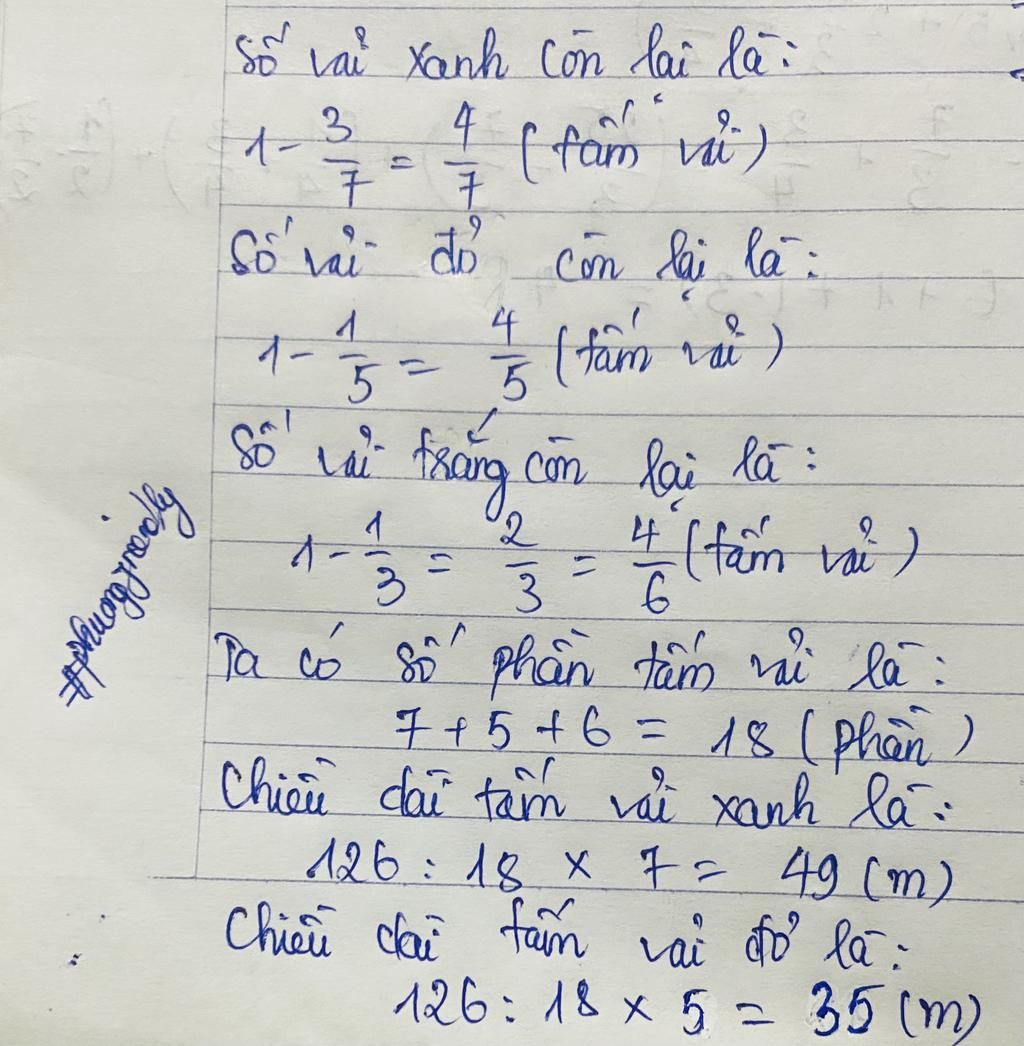 Số vải xanh còn lại là:
1 - 3/7 = 4/7 (tấm vải)
Số vải đỏ còn lại là:
1 - 1/5 = 4/5 (tấm vải)
Số vải trắng còn lại là:
1 - 1/3 = 2/3 = 4/6 (tấm vải)
Ta có số phần tấm vải là:
7 + 5 + 6 = 18 (phần)
Chiều dài tấm vải xanh là:
126 : 18 x 7 = 49 (m)
Chiều dài tấm vải đỏ là:
126 : 18 x 5 = 35 (m)